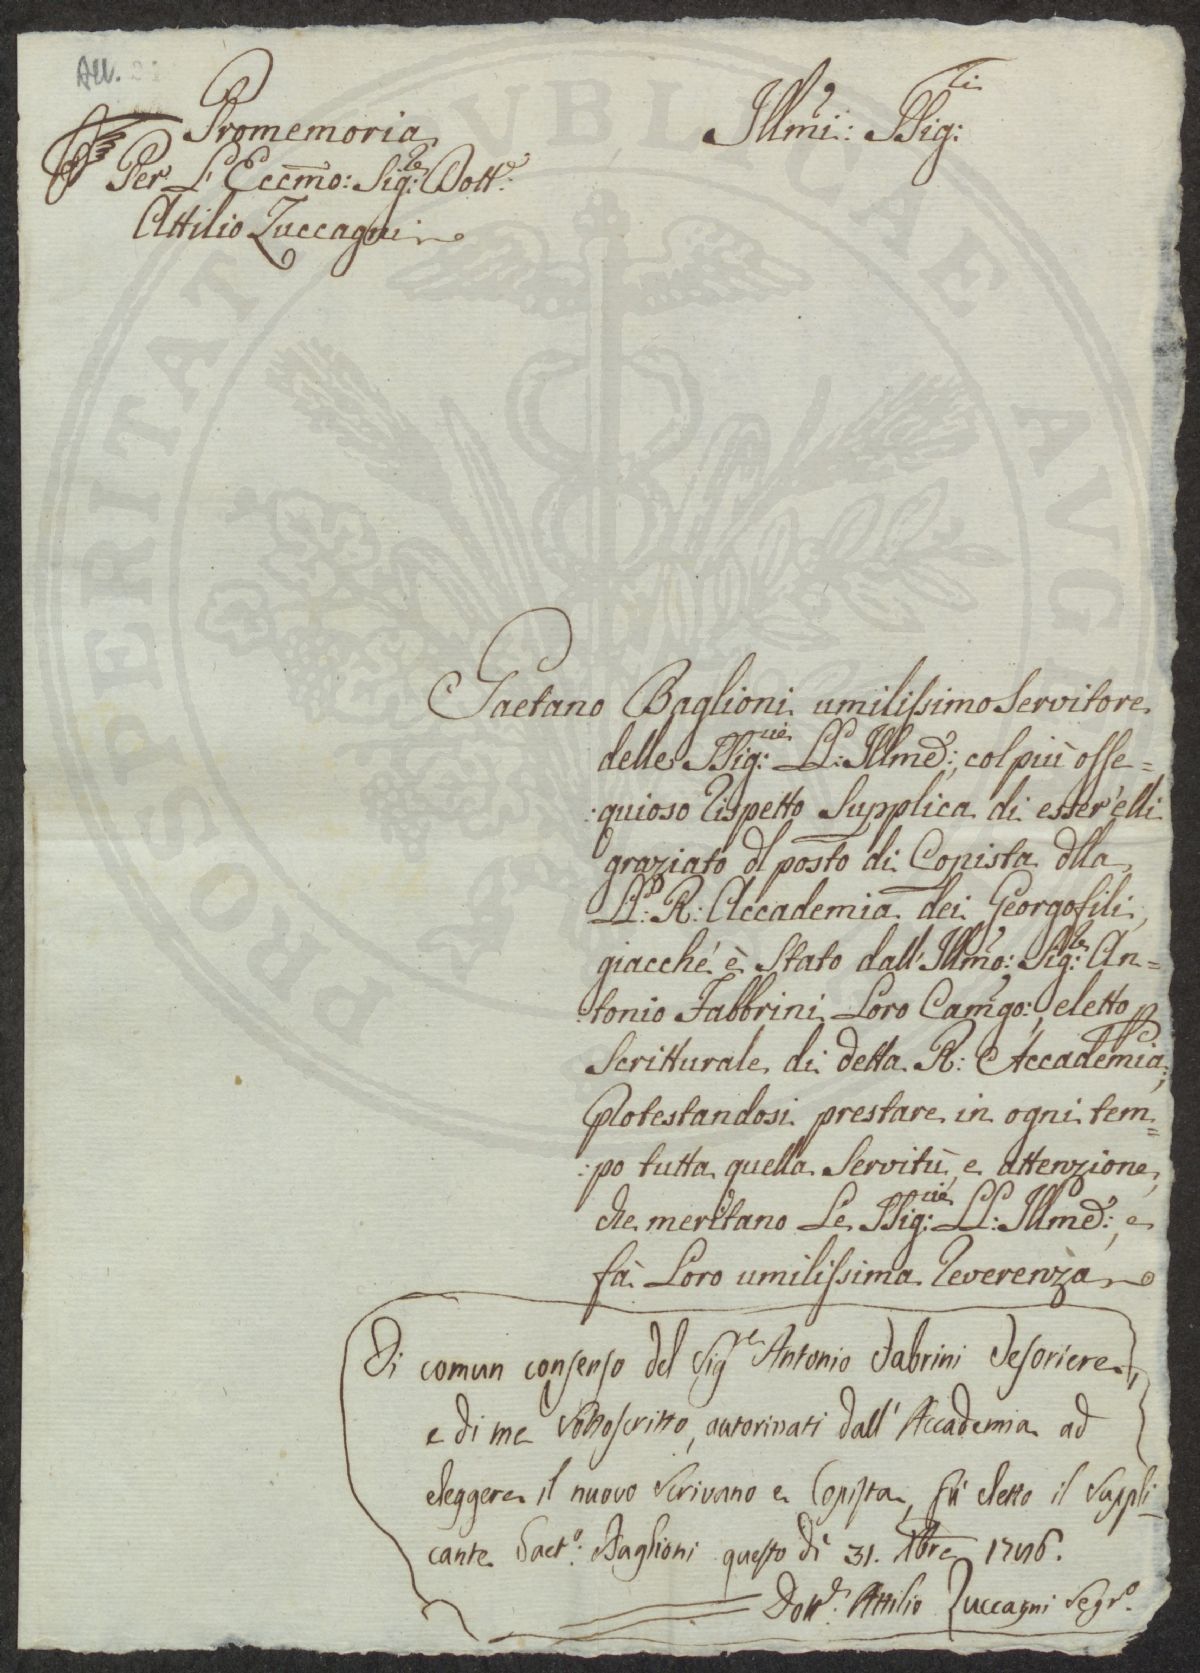 All.
Promemoria
Per L'Eccmo: Sig:re Dott:e
Attilio Zuccagni
Illmi: SSig:ri
Gaetano Baglioni umilissimo Servitore
delle SSig:rie LL: Illme:, col più osse=
:quioso rispetto Supplica di esser'elli
graziato dl posto di Copista dlla
LL: R: Accademia dei Georgofili,
giacché è Stato dall'Illmo: Sig:re An=
:tonio Fabbrini Loro Camgo:, eletto
Scritturale di detta R: Accademia;
Protestandosi prestare in ogni tem=
:po tutta quella Servitù, e attenzione,
che meritano Le SSig:rie LL: Illme:, e
fà Loro umilissima reverenza
Di comun consenso del Sig.re Antonio Fabrini Tesoriere,
e di me sottoscritto, autorizzati dall'Accademia ad
eleggere il nuovo Scrivano e Copista, fù eletto il Suppli-
cante Gaet.o: Baglioni questo dì 31. Xbre 1796.
Dott.e: Attilio Zuccagni Segr.o
PROSPERITATI PUBLICAE AUGENDAE